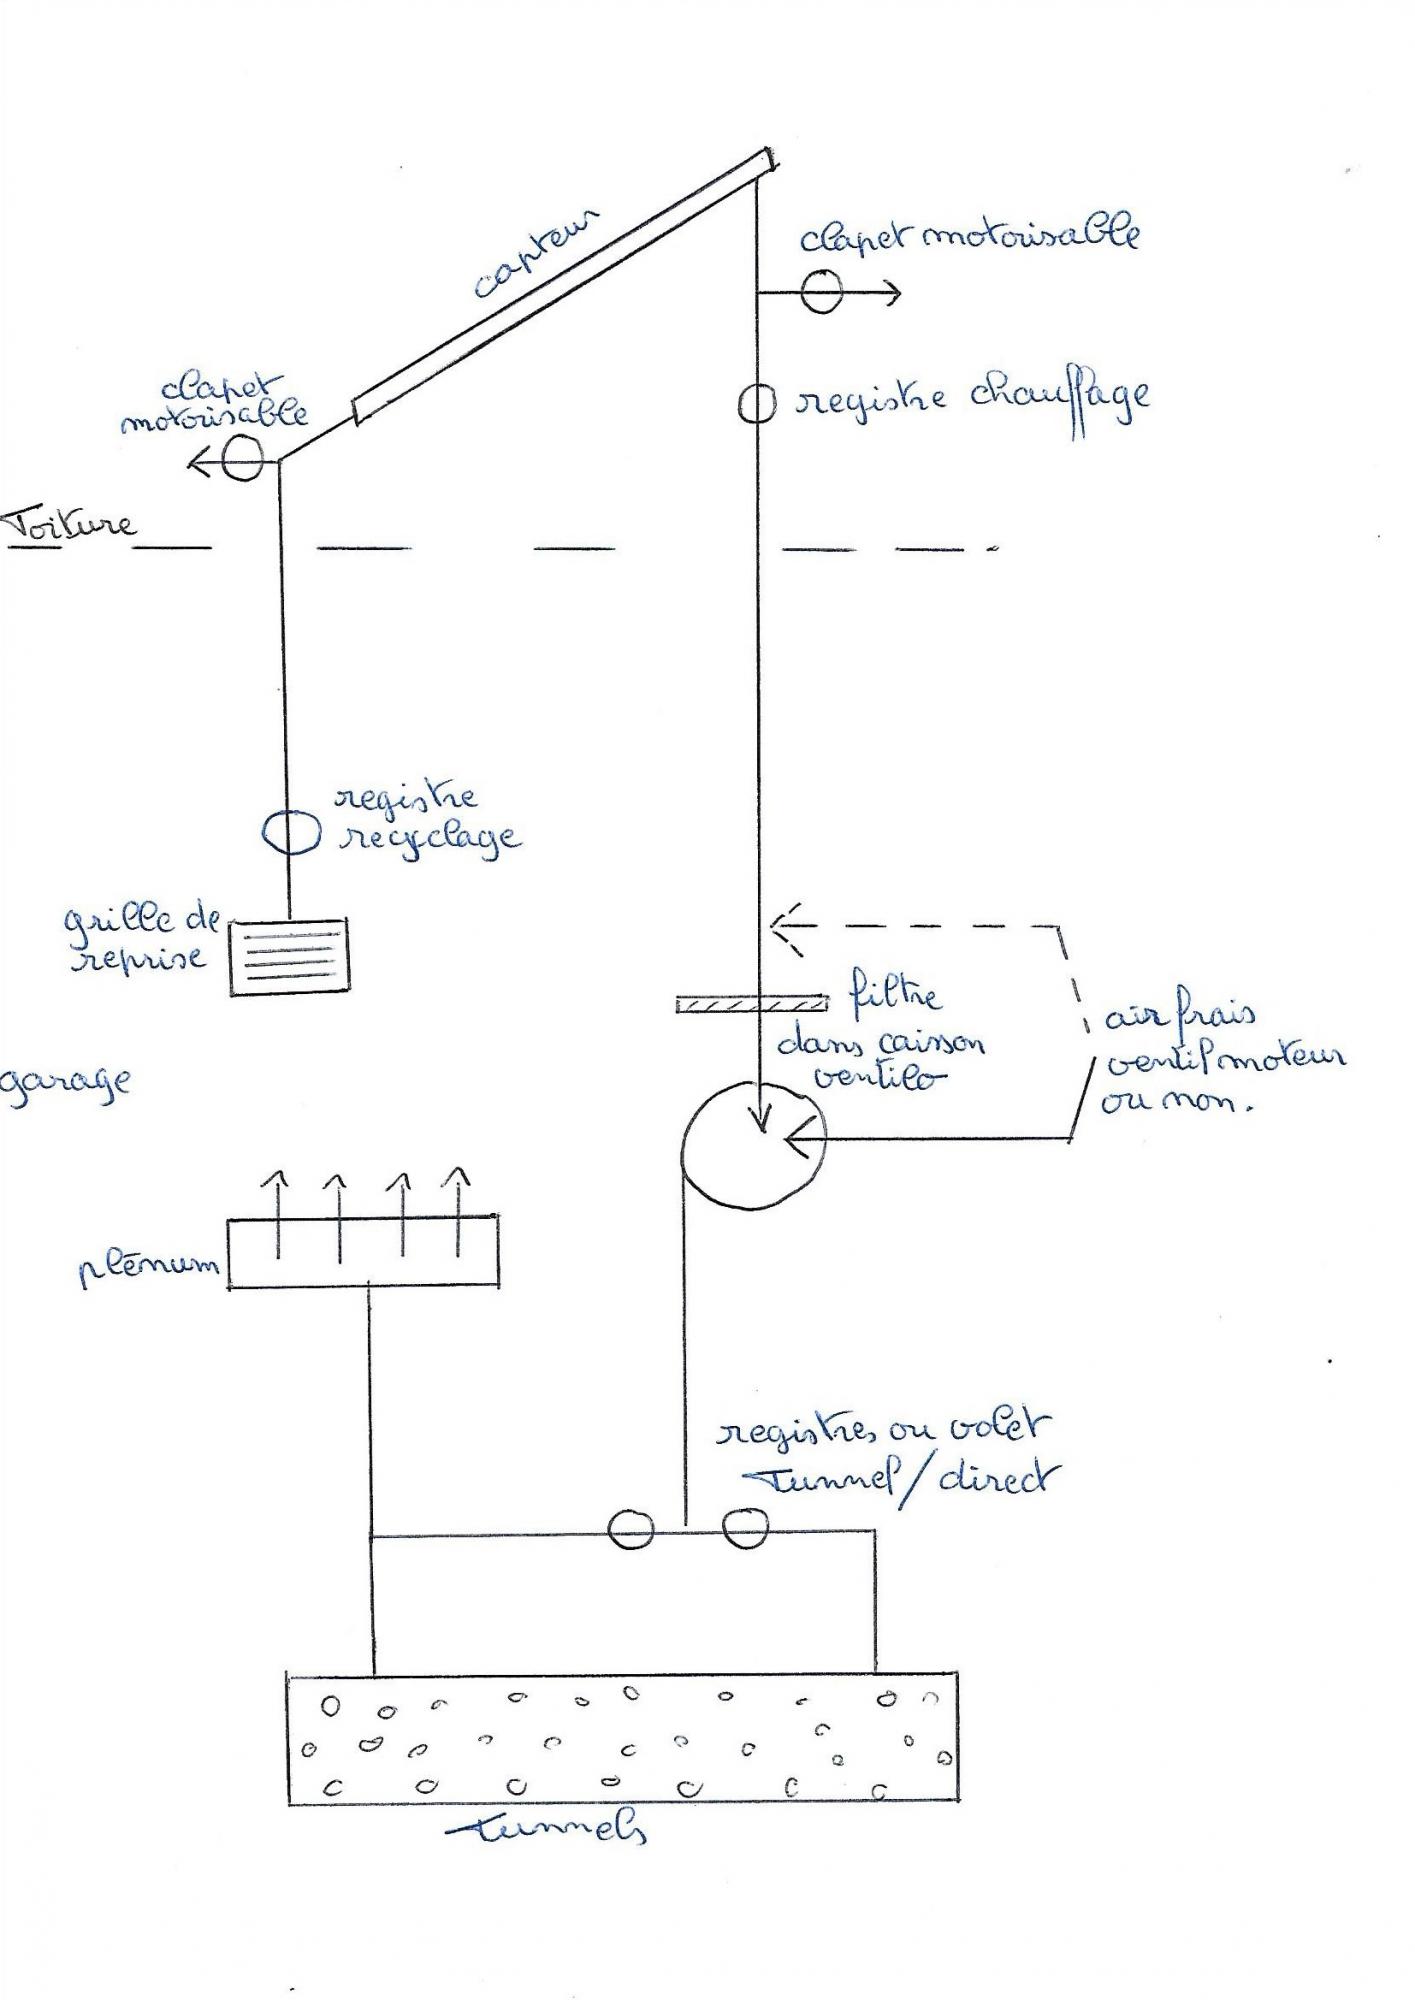 capteur
clapet motorisable
clapet
motorisable
registre chauffage
Toiture
registre
recyclage
grille de
reprise
filtre
dans caisson
ventilo
air frais
ventil moteur
ou non.
garage
plénum
registres ou volet
Tunnel/direct
Tunnels